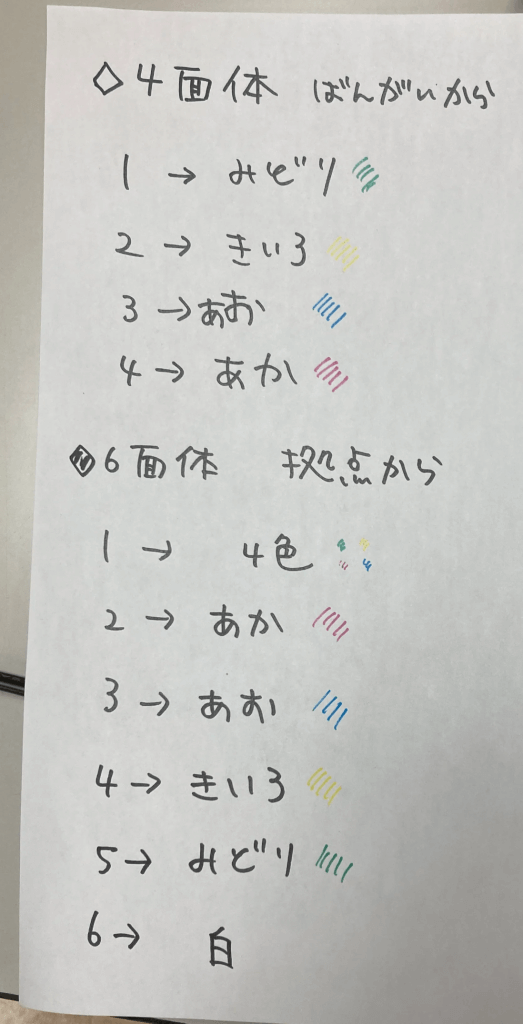 ◇4面体 ばんがいから
1 → みどり
2 → きいろ
3 → あお
4 → あか
◆6面体 拠点から
1 → 4色
2 → あか
3 → あお
4 → きいろ
5 → みどり
6 → 白